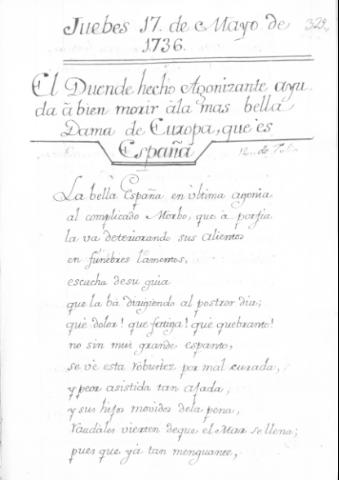 Juebes 17. de Mayo de 329
1736.
El Duende hecho Agonizante ayu
da â bien morir âla mas bella
Dama de Europa, que es
España
La bella España en ùltima agonia
al complicado Morbo, que a porfia
la va deteriorando sus alientos
en fúnebres lamentos,
escucha desu guia
que la bá dirigiendo al postrer dia;
què dolor! que fatiga! què quebranto!
no sin mui grande espanto,
se vè esta robustez por mal curada,
y peor asistida tan ajada;
y sus hijos movidos dela pena,
raudales vierten deque el Mar se llena;
pues que yà tan menguante,